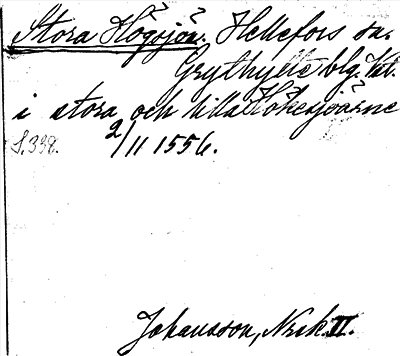 Stora Högsjön. Hellefors sn.
Grythytte blg. Vtl.
i stora och lilla Hökesjöarne
S. 338. 2/11 1556.
Johansson, Norsk. II.